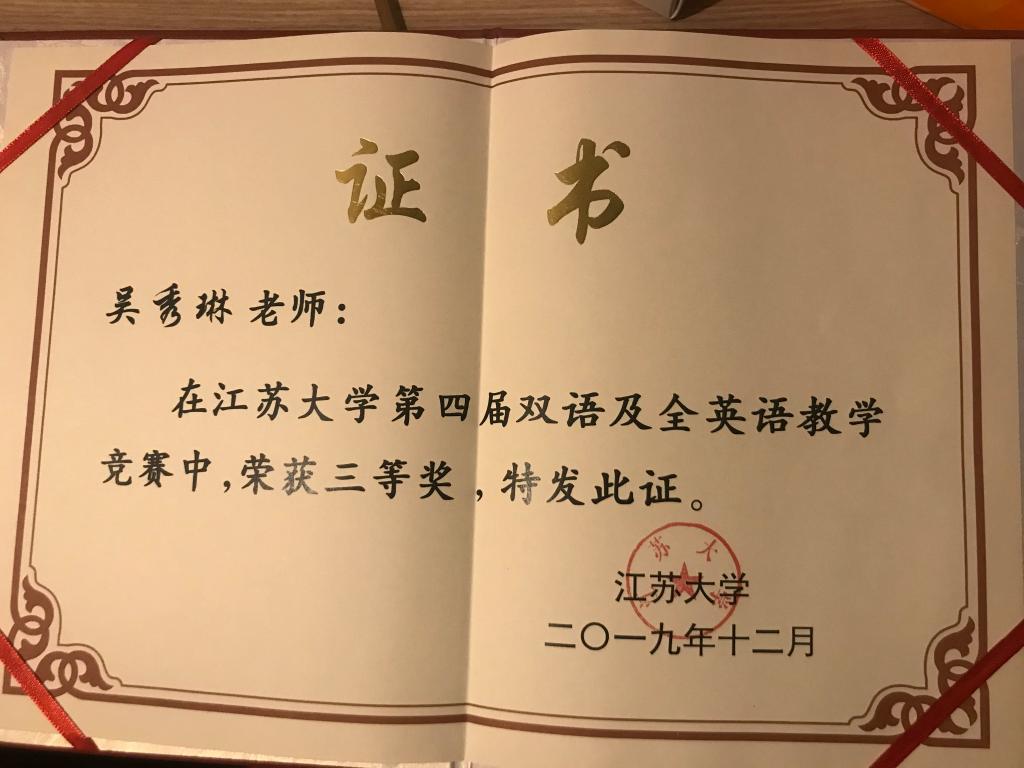 证书
吴秀琳老师：
在江苏大学第四届双语及全英语教学
竞赛中，荣获三等奖，特发此证。
江苏大学
二〇一九年十二月